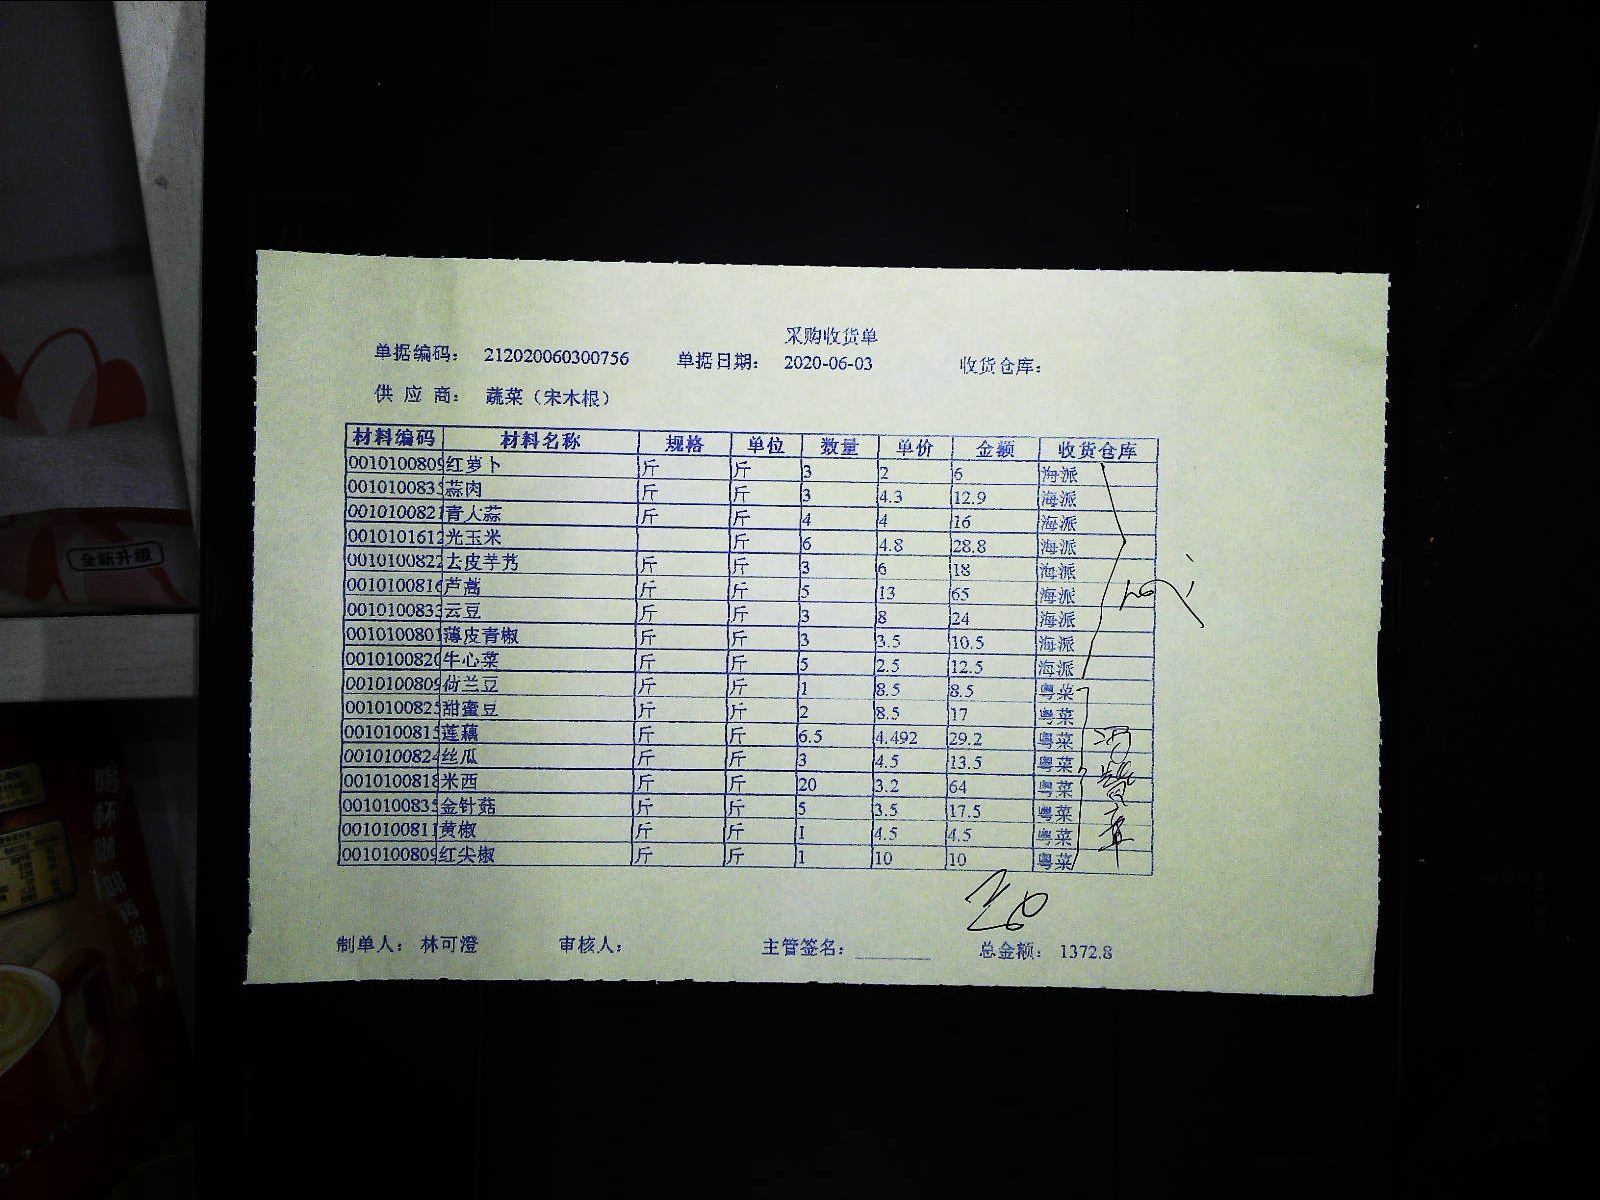 采购收货单
单据编码： 212020060300756 单据日期： 2020-06-03 收货仓库：
供 应 商： 蔬菜（宋木根）
材料编码 材料名称 规格 单位 数量 单价 金额 收货仓库
0010100809 红萝卜 斤 斤 3 2 6 海派
0010100835 蒜肉 斤 斤 3 4.3 12.9 海派
0010100821 青大蒜 斤 斤 4 4 16 海派
0010101612 光玉米 斤 6 4.8 28.8 海派
0010100822 去皮芋艿 斤 斤 3 6 18 海派
0010100816 芦蒿 斤 斤 5 13 65 海派
0010100833 云豆 斤 斤 3 8 24 海派
0010100801 薄皮青椒 斤 斤 3 3.5 10.5 海派
0010100820 牛心菜 斤 斤 5 2.5 12.5 海派
0010100809 荷兰豆 斤 斤 1 8.5 8.5 粤菜
0010100825 甜蜜豆 斤 斤 2 8.5 17 粤菜
0010100815 莲藕 斤 斤 6.5 4.492 29.2 粤菜
0010100824 丝瓜 斤 斤 3 4.5 13.5 粤菜
0010100818 米西 斤 斤 20 3.2 64 粤菜
0010100835 金针菇 斤 斤 5 3.5 17.5 粤菜
0010100811 黄椒 斤 斤 1 4.5 4.5 粤菜
0010100809 红尖椒 斤 斤 1 10 10 粤菜
制单人： 林可澄 审核人： 主管签名： 总金额： 1372.8
全新升级
喝杯咖啡再说